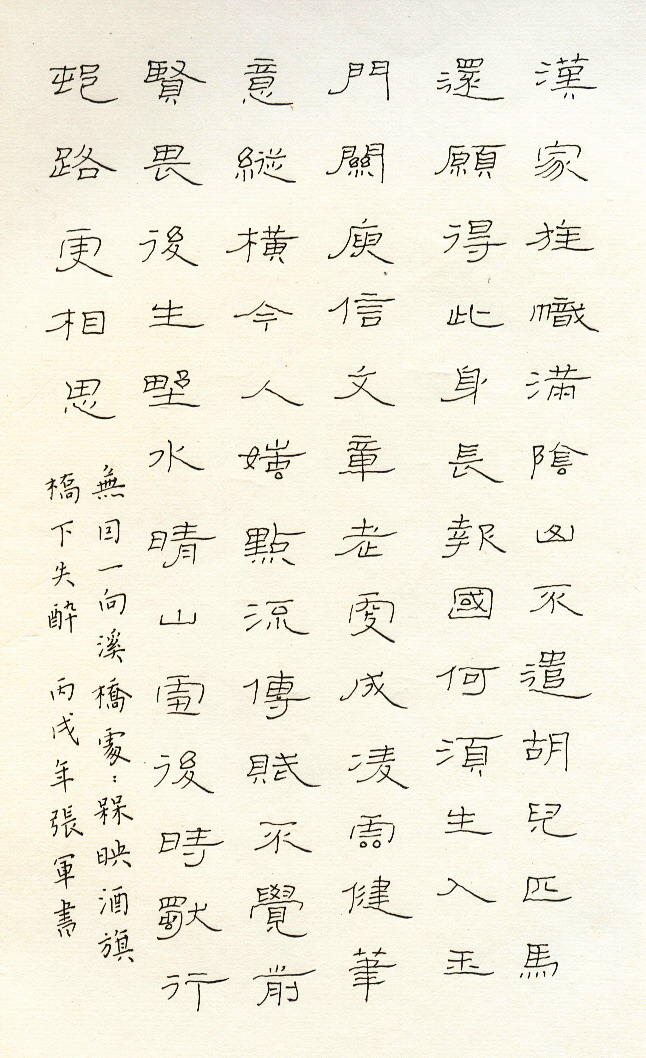 漢家旌幟滿陰山不遣胡兒匹馬
還願得此身長報國何須生入玉
門關庾信文章老更成凌雲健筆
意縱橫今人媸點流傳賦不覺前
賢畏後生野水晴山雪後時獨行
邨路更相思
無因一向溪橋處:槑映酒旗
橋下失醉 丙戌年張軍書